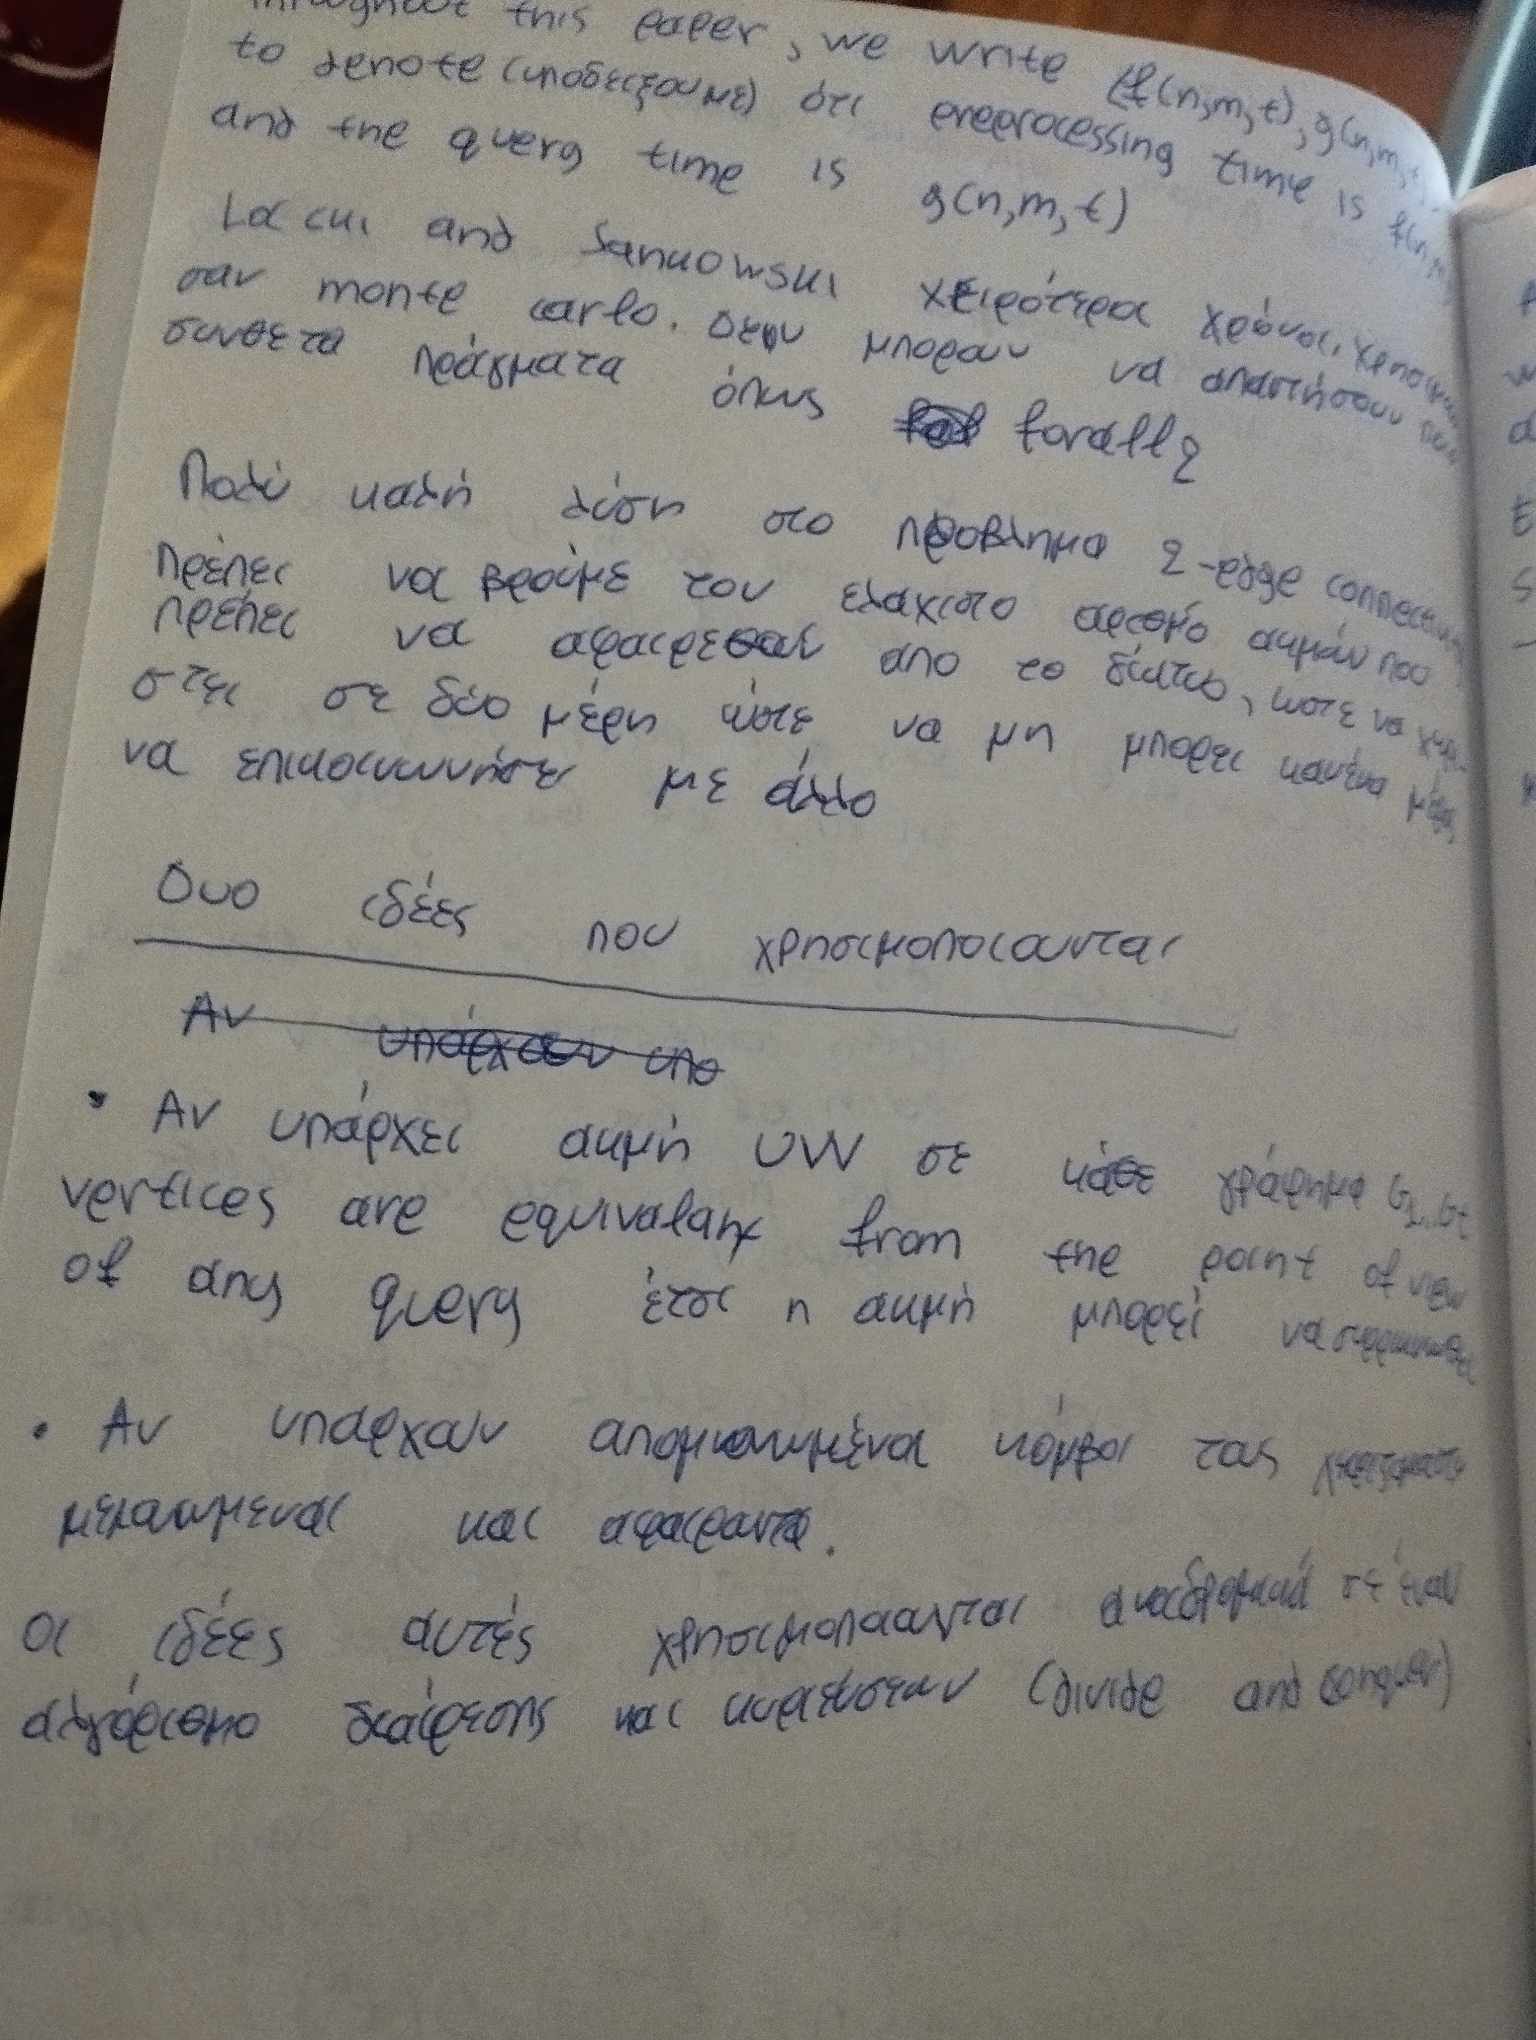 throughout this paper, we write <f(n,m,t), g(n,m,t)
to denote (υποδείξουμε) ότι preprocessing time is f(n,m
and the query time is g(n,m,t)
Lacki and Sankowski χειρότεροι χρόνοι,
σαν monte carlo. Δεν μπορουν να απαντήσουν πιο
συνθετα πράγματα όπως forall q
Πολύ καλή λύση στο πρόβλημα 2-edge connectivity
πρέπει να βρούμε τον ελάχιστο αριθμό ακμών που
πρέπει να αφαιρεθούν απο το δίκτυο, ώστε να χωρι-
στει σε δύο μέρη ώστε να μη μπορει κανένα μέρος
να επικοινωνήσει με άλλο
Δυο ιδέες που χρησιμοποιουνται
Αν υπάρχουν υπο
• Αν υπάρχει ακμή UW σε κάθε γράφημα G1..Gt
vertices are equivalent from the point of view
of any query έτσι η ακμή μπορεί να συρρικνωθεί
• Αν υπαρχουν απομονωμένοι κόμβοι τους
μεμονωμενοι και αφαιρουντα.
Οι ιδέες αυτές χρησιμοποιουνται αναδρομικά σε έναν
αλγόριθμο διαίρεσης και κυριεύσεων (divide and conquer)